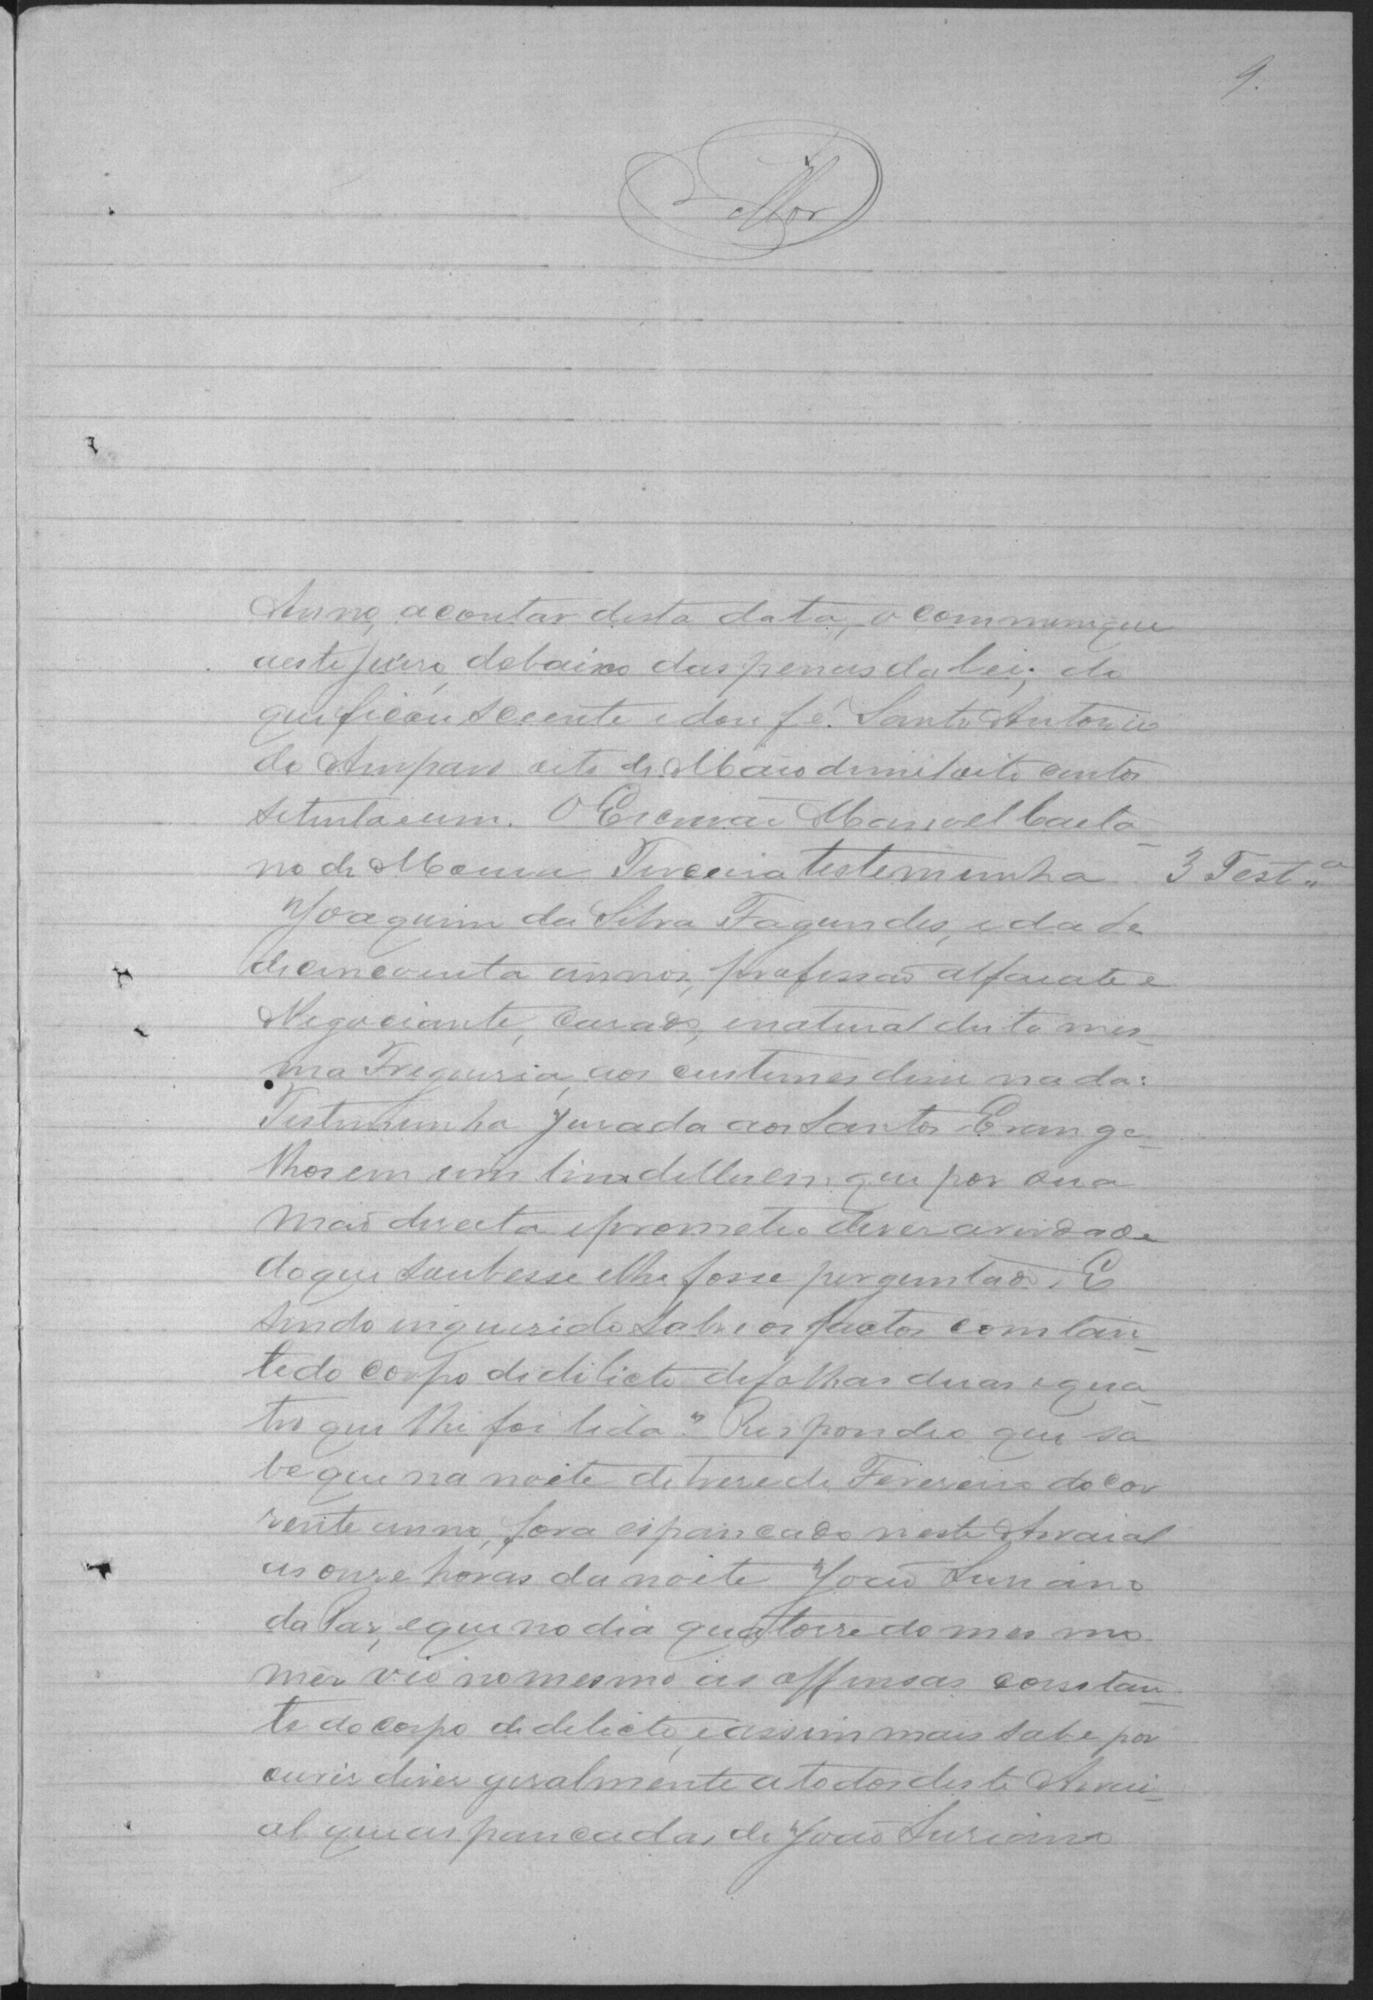 9.
Anno, a contar desta data, o communique
aeste juiso, debaixo das penas da Lei; do
que ficou sciente e dou fé. Santo Antonio
do Amparo oito de Maio de mil oito centos
setenta e um. O Escrivaõ Manoel Caeta_
no de Moura Terceira testemunha 3 Test.ª
Joaquim da Silva Fagundes, idade
de cincoenta annos, profissaõ alfaiate e
Negociante, casado, e natural desta mes_
ma Freguesia, aos custumes disse nada:
Testemunha jurada aos Santos Evange_
lhos em um livro delles em que pos sua
maõ direita e prometeo diser averdade
do que soubesse e lhe fosse perguntado. E
sendo inquerido sobre os factos constan_
te do corpo de delicto de folhas duas e qua_
tro que lhe foi lida. Respondeo que sa
be que na noite de trese de Fevereiro do cor
rente anno, fora espancado neste Arraial
as onze horas da noite Joaõ Suriano
da Paz, e que no dia quatorse do mesmo
mes vio no mesmo as offensas constan_
te do corpo de delicto, e assim mais sabe por
ouvir diser geralmente a todos deste Arrai_
al que as pancadas de Joaõ Suriano